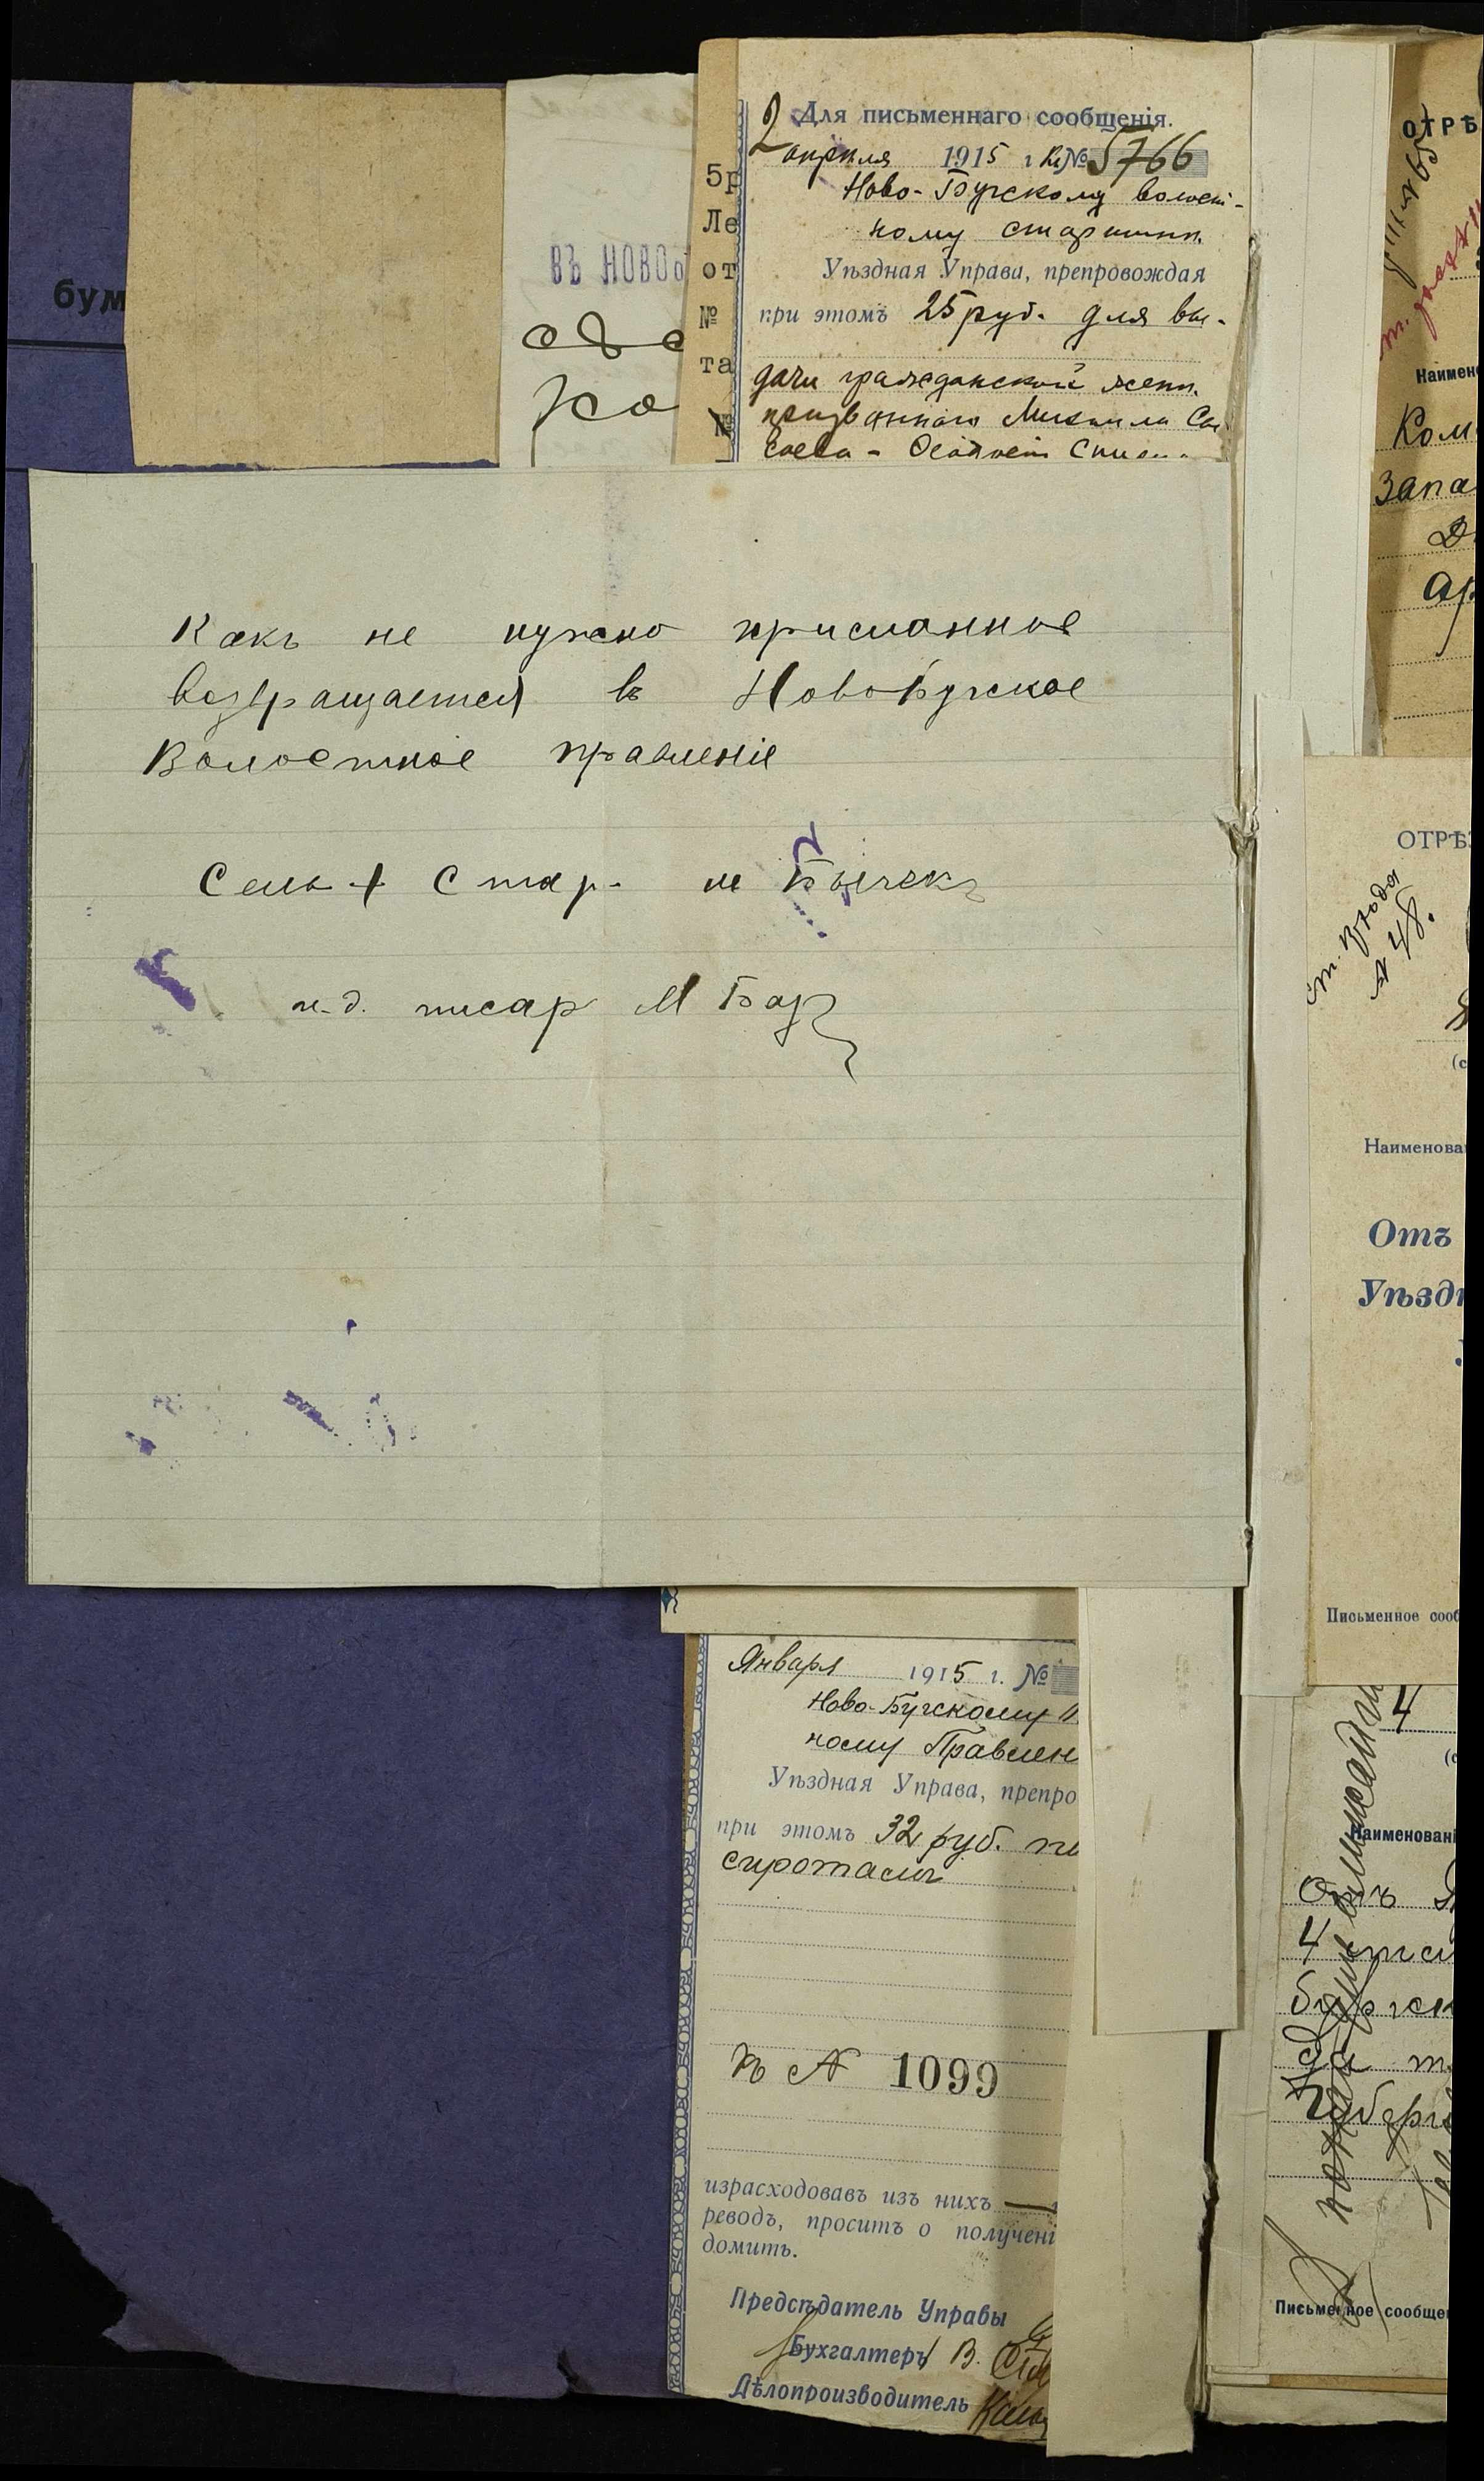 бум
ВЪ НОВОБ
5р
Ле
от
№
та
№
Для письменнаго сообщенія.
2 апрѣля 1915 г. К №5766
Ново-Бугскому волост-
ному старшинѣ.
Уѣздная Управа, препровождая
при этомъ 25 руб. для вы-
дачи гражданской женѣ
призваннаго Михаила
ОТРѢ
№ 65
Наимен
Ком
Запа
Какъ не нужно присланное
возвращается въ НовоБугское
Волостное правленіе
Сель + Стар. М Бычекъ
и.д. писар М Баз
ОТРѢЗ
№ 48.
Наименова
Отъ
Уѣзд
Письменное сооб
Января 1915 г. №
Ново-Бугскому
ному Правлен
Уѣздная Управа, препро
при этомъ 32 руб.
сиротамъ
К № 1099
израсходовавъ изъ нихъ —
реводъ, проситъ о получені
домить.
Предсѣдатель Управы
Бухгалтеръ В.
Дѣлопроизводитель
4
Наименовані
Отъ
4
Письменное сообще